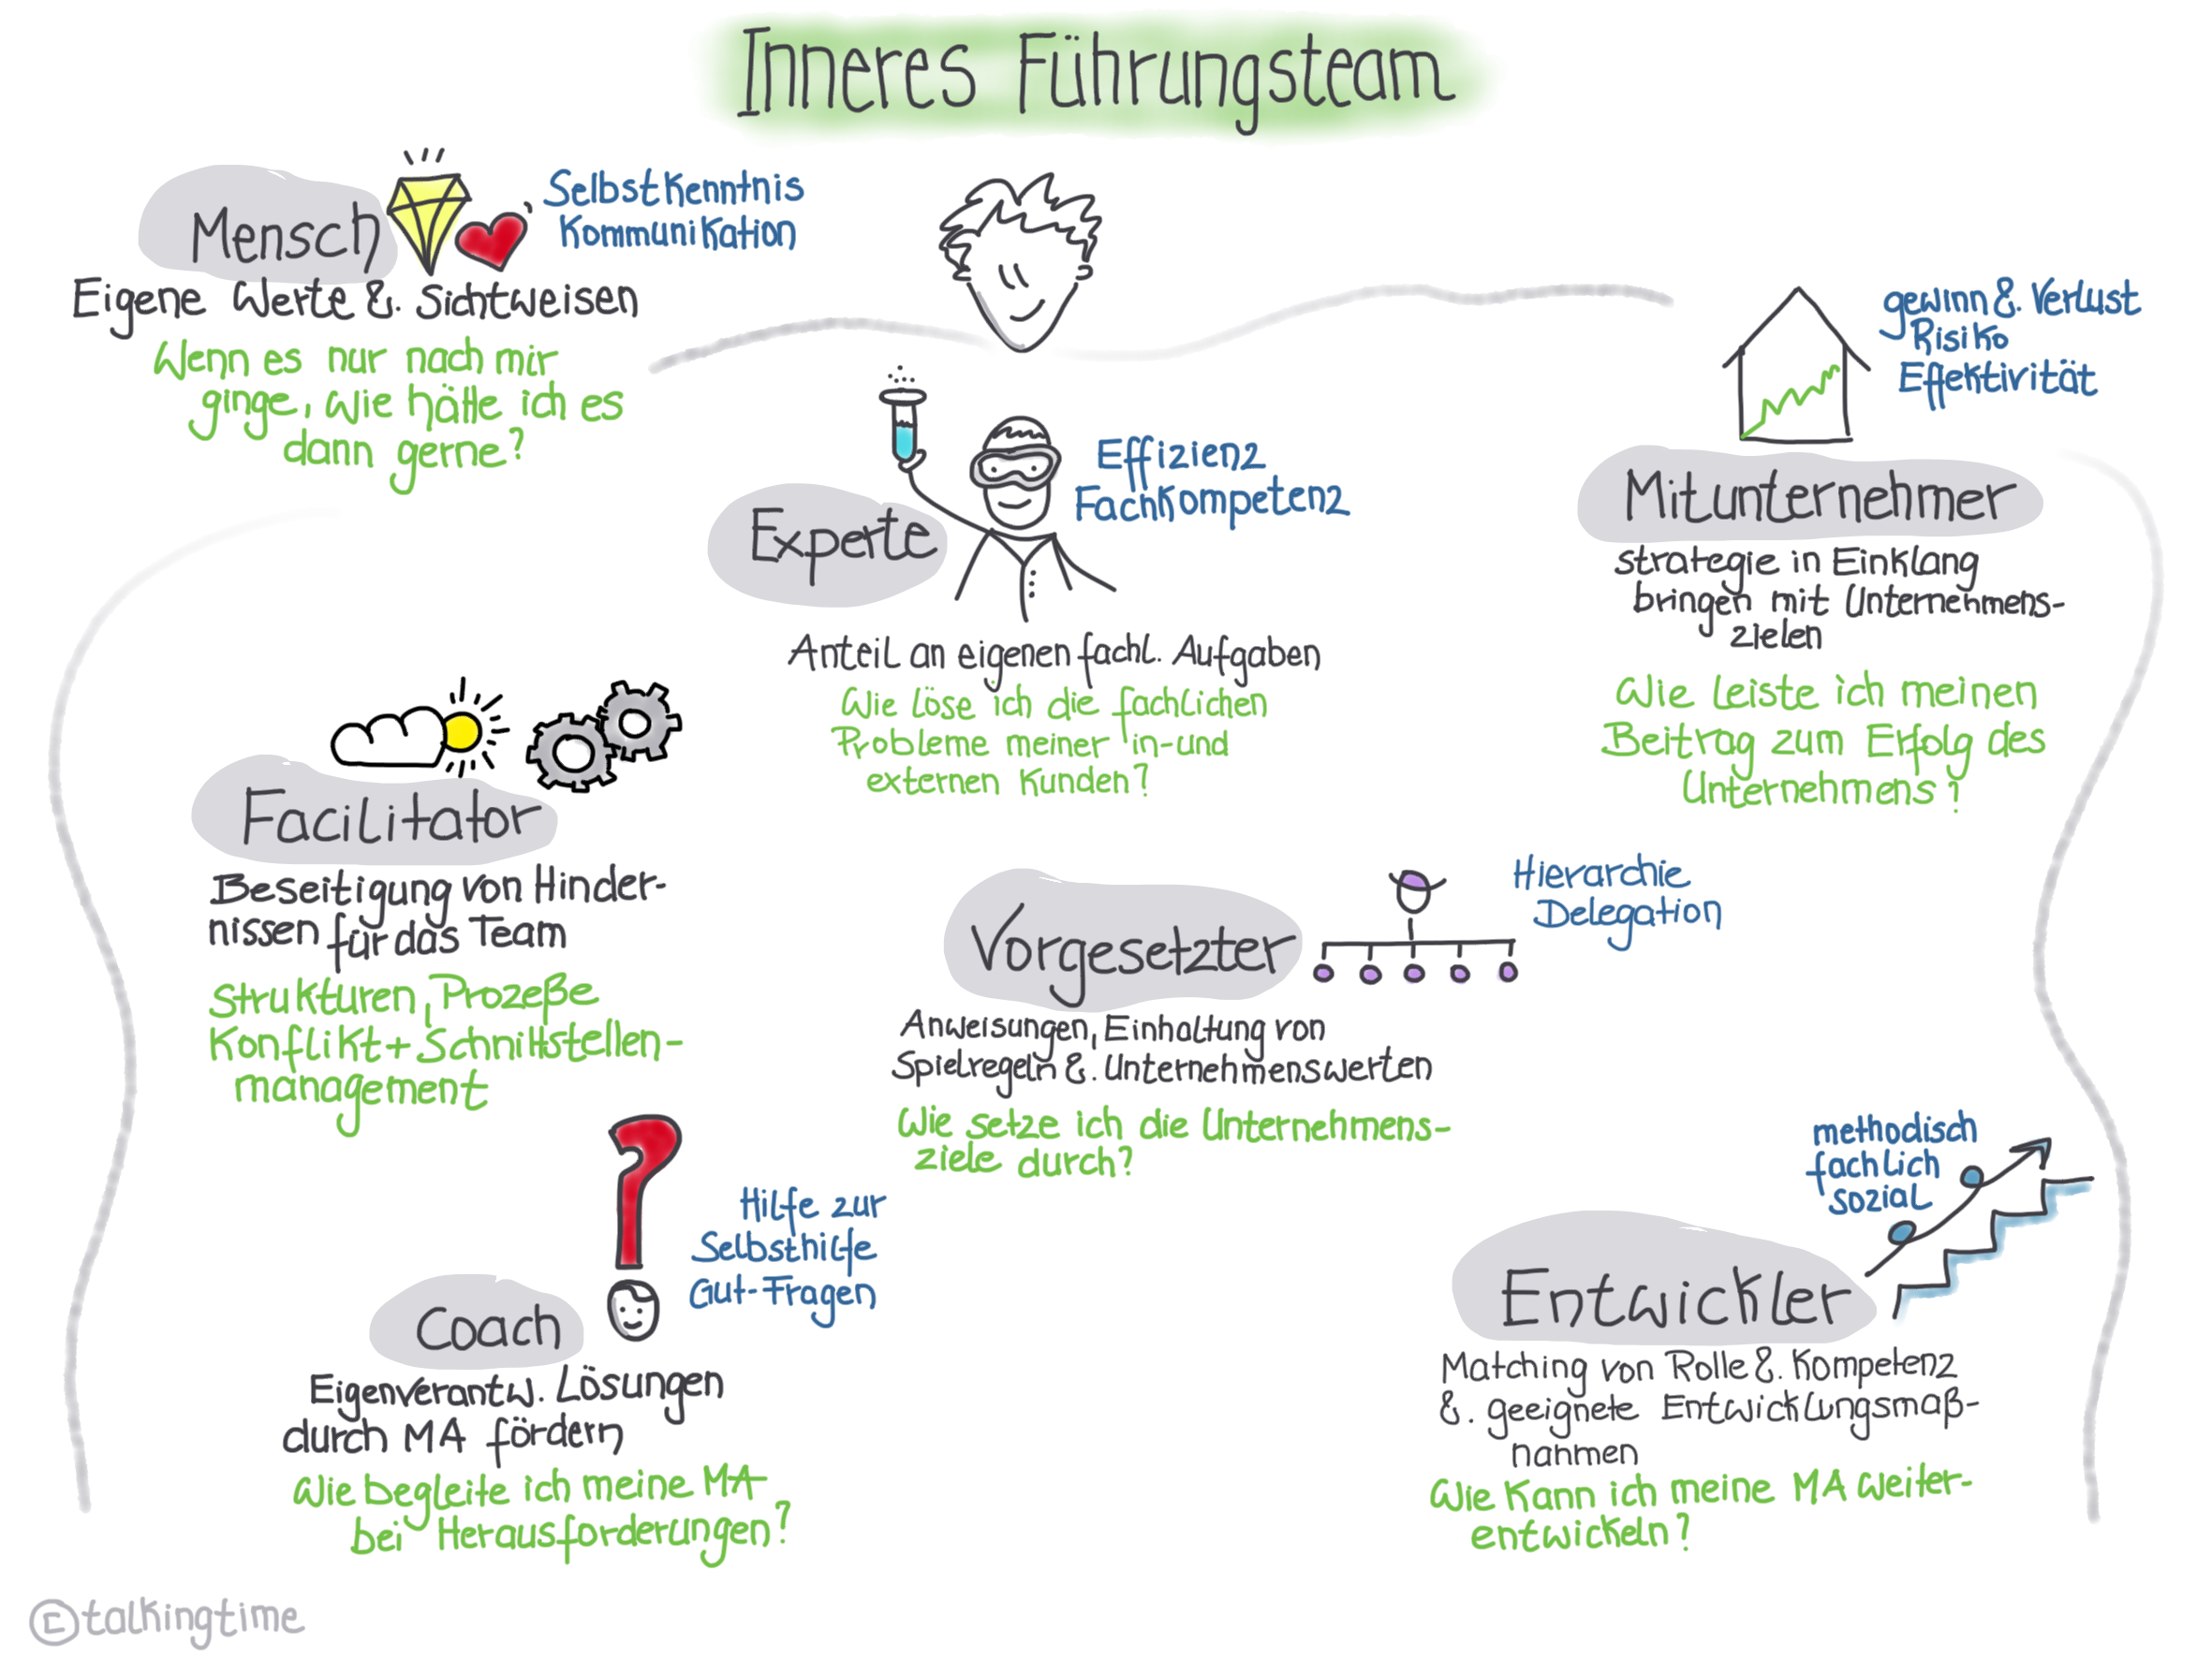 Inneres Führungsteam
Mensch
Selbstkenntnis
Kommunikation
Eigene Werte &. Sichtweisen
Wenn es nur nach mir
ginge, wie hätte ich es
dann gerne?
Experte
Effizienz
Fachkompetenz
Anteil an eigenen fachl. Aufgaben
Wie löse ich die fachlichen
Probleme meiner in-und
externen Kunden?
gewinn &. Verlust
Risiko
Effektivität
Mitunternehmer
strategie in Einklang
bringen mit Unternehmens-
zielen
Wie leiste ich meinen
Beitrag zum Erfolg des
Unternehmens?
Facilitator
Beseitigung von Hinder-
nissen für das Team
Strukturen, Prozeße
Konflikt+Schnittstellen-
management
Vorgesetzter
Hierarchie
Delegation
Anweisungen, Einhaltung von
Spielregeln &. Unternehmenswerten
Wie setze ich die Unternehmens-
ziele durch?
Hilfe zur
Selbsthilfe
Gut-Fragen
Coach
Eigenverantw. Lösungen
durch MA fördern
Wie begleite ich meine MA
bei Herausforderungen?
methodisch
fachlich
sozial
Entwickler
Matching von Rolle &. Kompetenz
&. geeignete Entwicklungsmaß-
nahmen
Wie kann ich meine MA weiter-
entwickeln?
©talkingtime